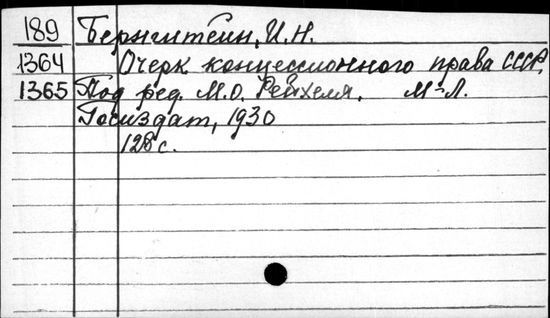 189 Бернштейн, И.Н.
1364 Очерк концессионного права СССР.
1365 Под ред. М.О. Рейхеля. М-Л.
Госиздат, 1930
128 с.